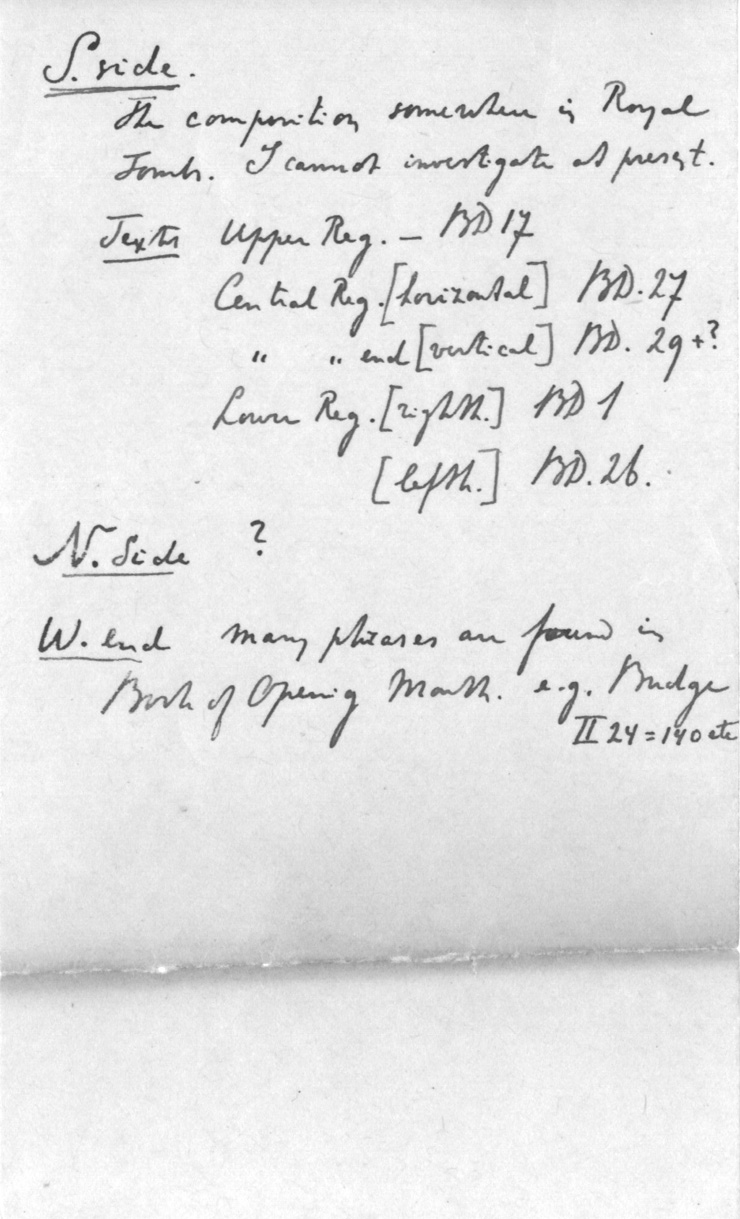 S. side.
The composition somewhere in Royal
Tombs. I cannot investigate at present.
Texts Upper Reg. – BD 17
Central Reg. [horizontal] BD. 27
" " end [vertical] BD. 29 + ?
Lower Reg. [righth.] BD 1
[lefth.] BD. 26.
N. Side ?
W. end many phrases are found in
Book of Opening Mouth. e.g. Budge
II 24 = 140 etc